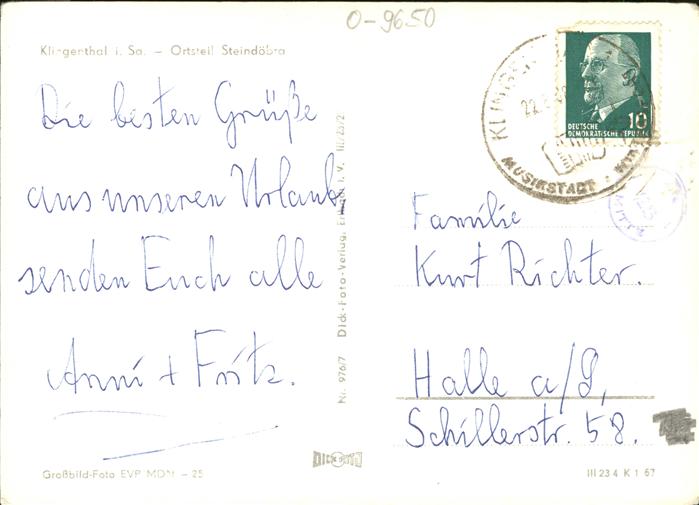 O-9650
Klingenthal i. Sa. — Ortsteil Steindöbra
Die besten Grüße
aus unseren Urlaub,
senden Euch alle
Anni + Fritz.
Großbild-Foto EVP MDN —.25
Nr. 976/7 Dick-Foto-Verlag, Erlbach i. V. III/23/2
DICK FOTO
KLINGEN
22.
MUSIKSTADT
DEUTSCHE
DEMOKRATISCHE REPUBLIK
10
Familie
Kurt Richter.
Halle a/S,
Schillerstr. 58.
III 23 4 K 1 67